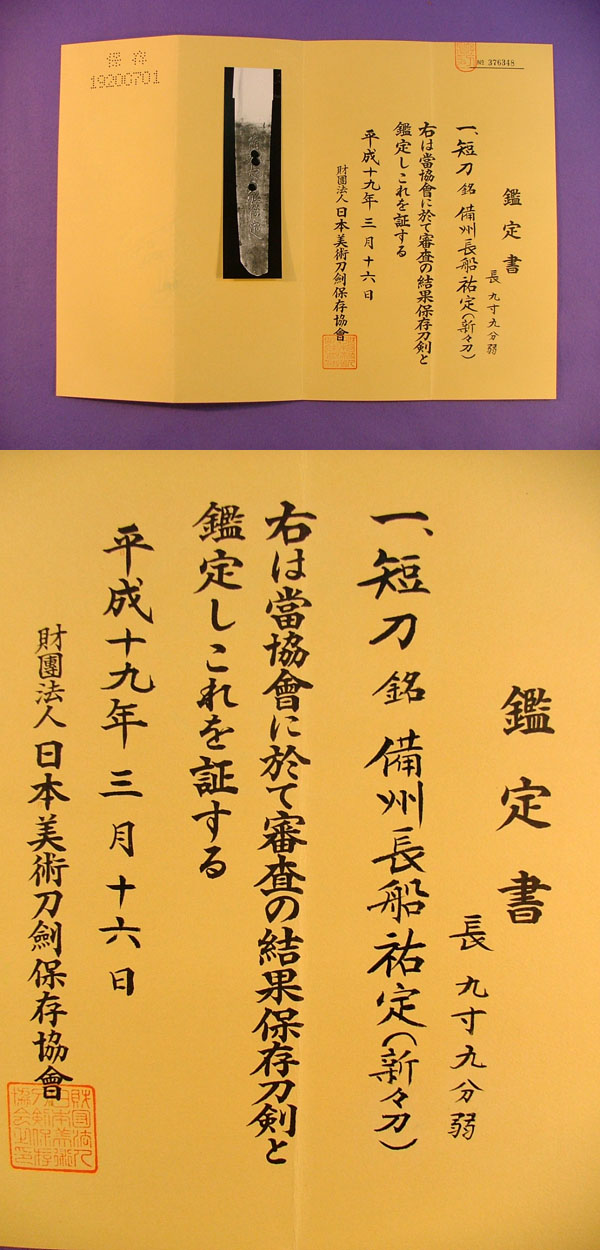 保存
19200701
No 376348
鑑定書
一、短刀 銘 備州長船祐定（新々刀）
長 九寸九分弱
右は當協會に於て審査の結果保存刀剣と
鑑定しこれを証する
平成十九年三月十六日
財團法人日本美術刀劍保存協會
鑑定書
一、短刀 銘 備州長船祐定（新々刀）
長 九寸九分弱
右は當協會に於て審査の結果保存刀剣と
鑑定しこれを証する
平成十九年三月十六日
財團法人日本美術刀劍保存協會